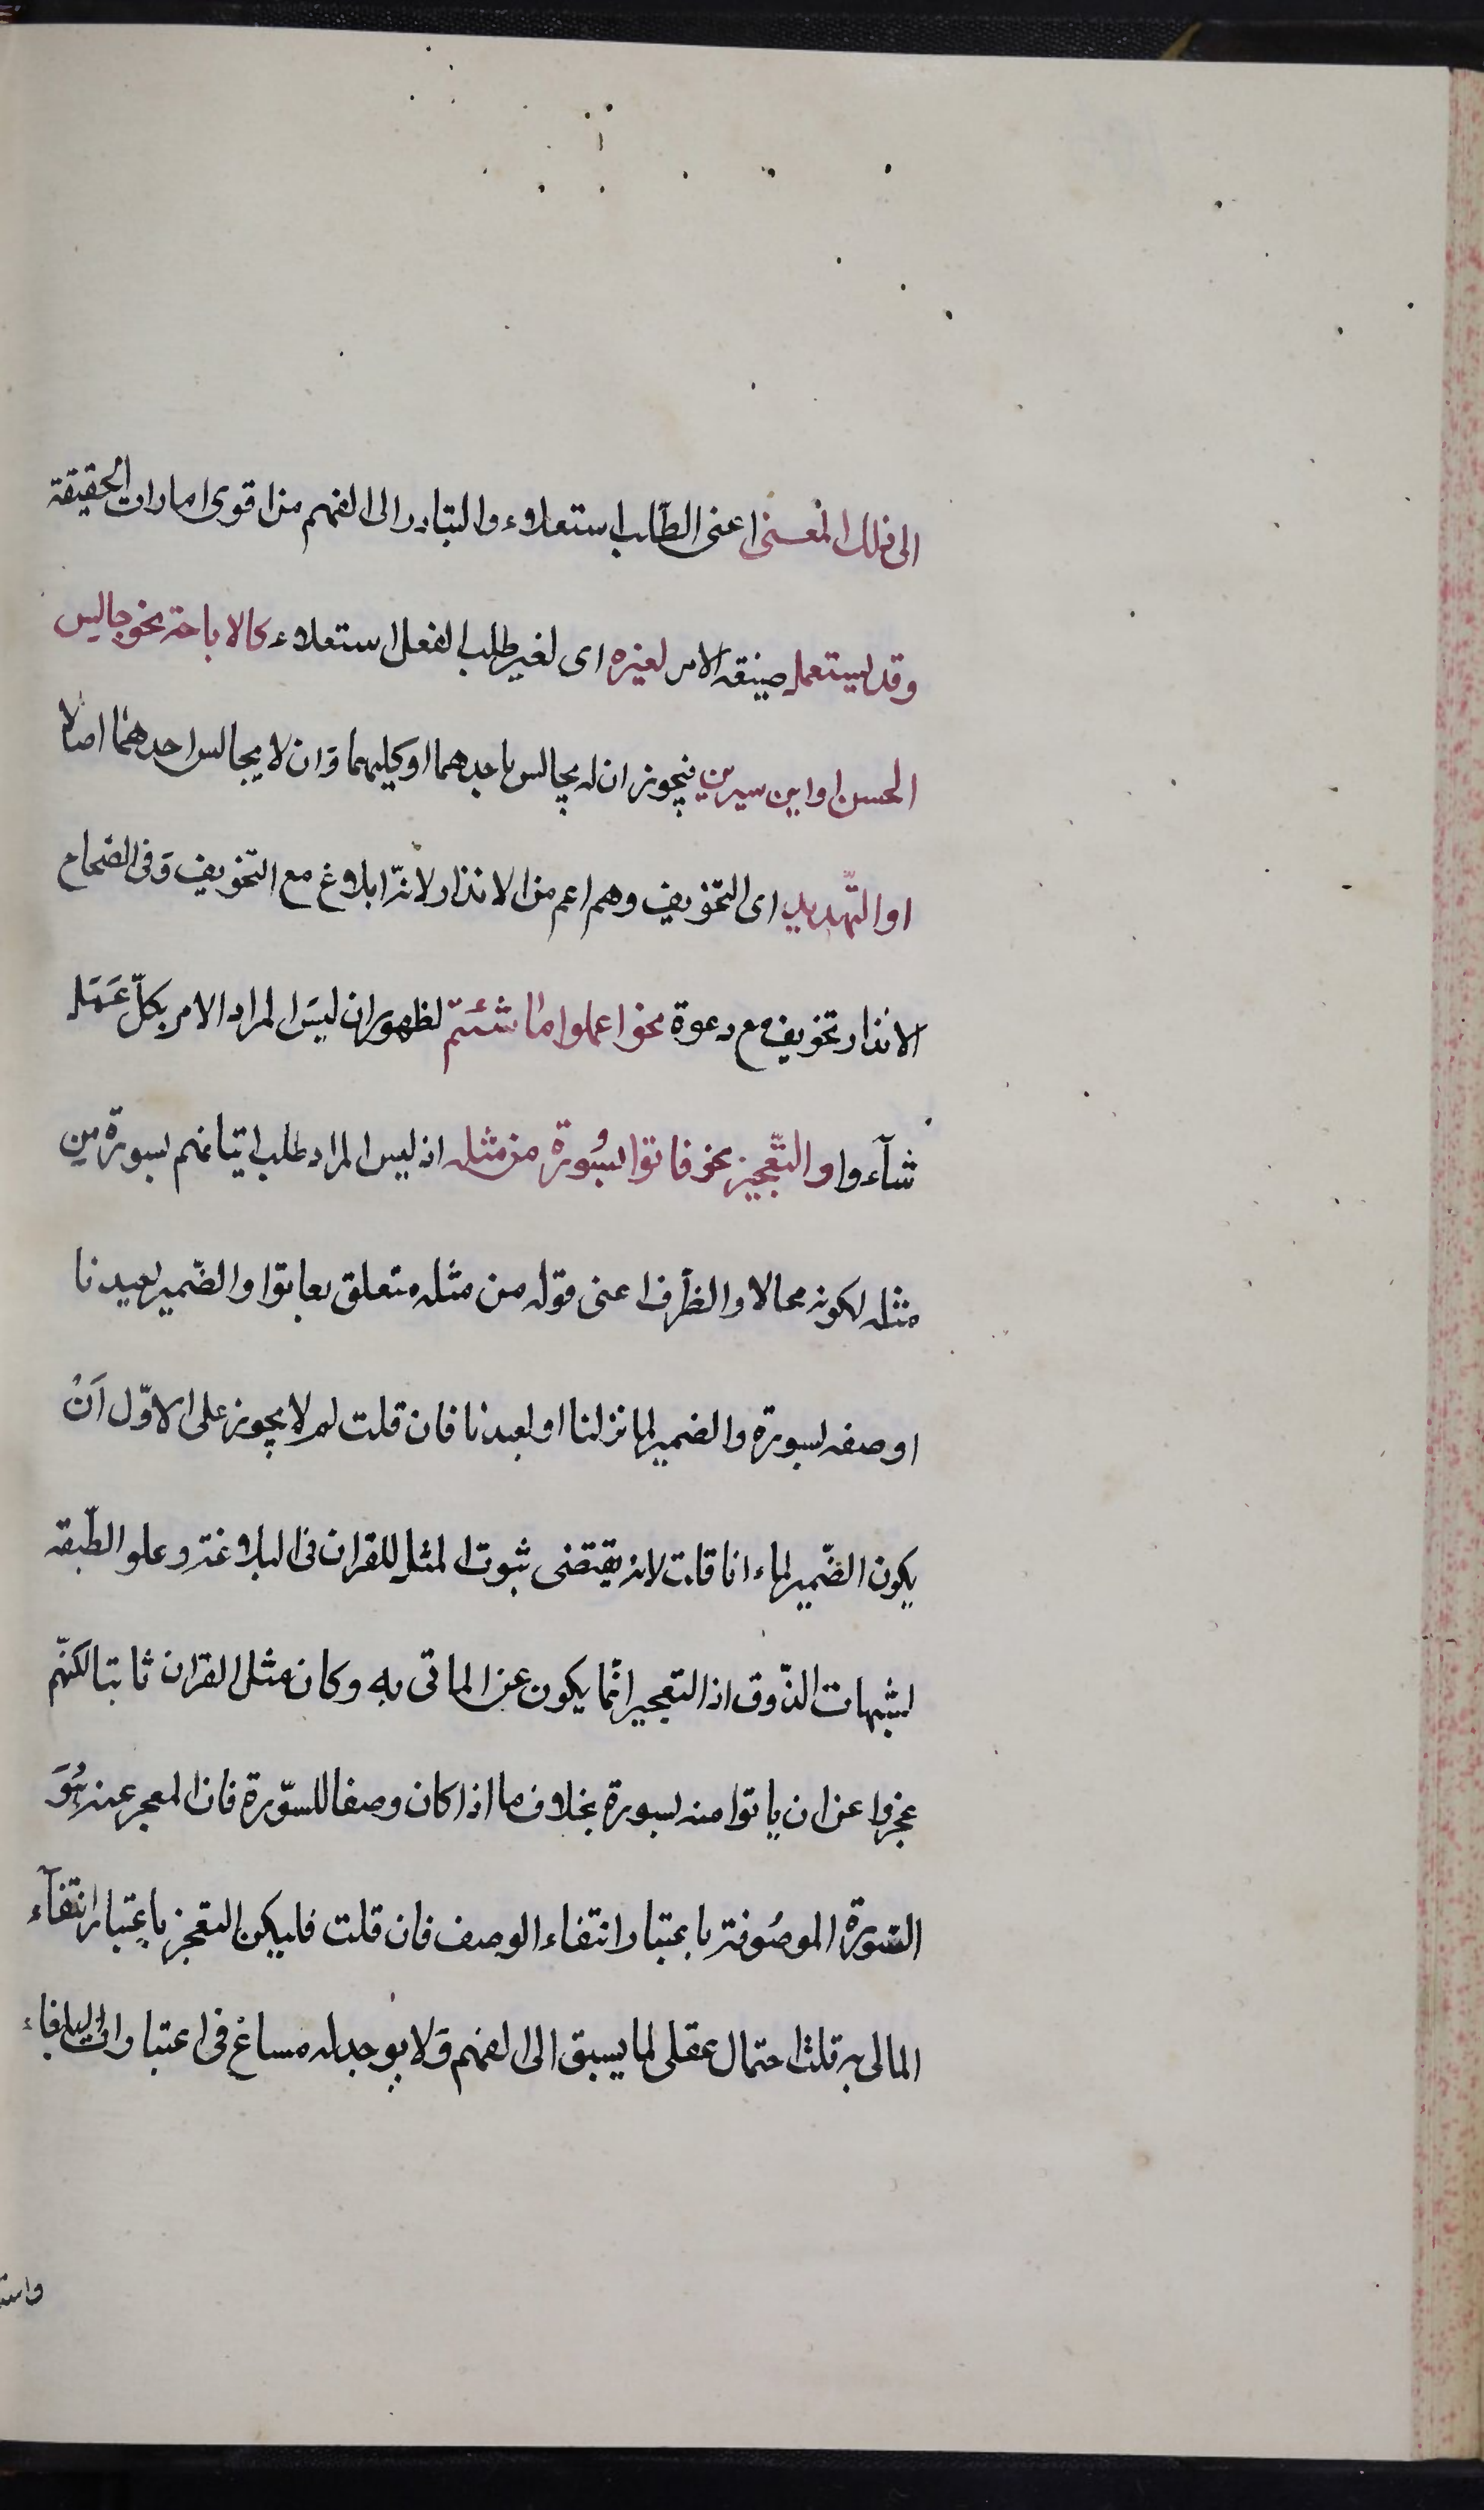 الى ذلك المعنى اعنى الطّلب استعلاء والتبادر الى الفهم من اقوى امارات الحقيقة
وقد يستعمل صيغة الامر لغيره اى لغير طلب الفعل استعلاء كالاباحة نحو جالس
الحسن او ابن سيرين فيجوز ان له يجالس باحدهما او كليهما وَان لا يجالس احدهما اصلا
او التّهديد اى التخويف وهم اعم من الانذار لانّه ابلاغ مع التخويف وَفى الصّحاح
الانذار تخويف مع دعوة نحو اعملوا ما شئتم لظهور ان ليسَ المراد الامر بكلّ عَمَل
شآءوا او التّعجيز نحو فاتوا بسُورة من مثله اذ ليس المراد طلب اتيانهم بسورة مِن
مثله لكونه محالا والظرف اعنى قوله من مثله متعلق بفاتوا والضّمير لعبدنا
او صفه لسورة والضمير لما نزلنا او لعبدنا فان قلت لم لا يجوز على الاوّل اَنْ
يكون الضّمير لما انا قلت لانه يقتضى ثبوت المثل للقران فى البلاغة وعلو الطّبقه
لشبهات الذّوق اذ التعجيز انّما يكون عن الماتى به وكان مثل القران ثابتا لكنّهم
عجزوا عن ان ياتوا منه بسورة بخلاف ما اذا كان وصفا للسّورة فان المعجز عنه هُوَ
السّورة الموصُوفة باعتبار انتفاء الوصف فان قلت فليكن التعجز باعتبار انتفآء
المالى به قلت احتمال عقلى لما يسبق الى الفهم وَلا يوجد له مساغ فى اعتبارات البلغاء